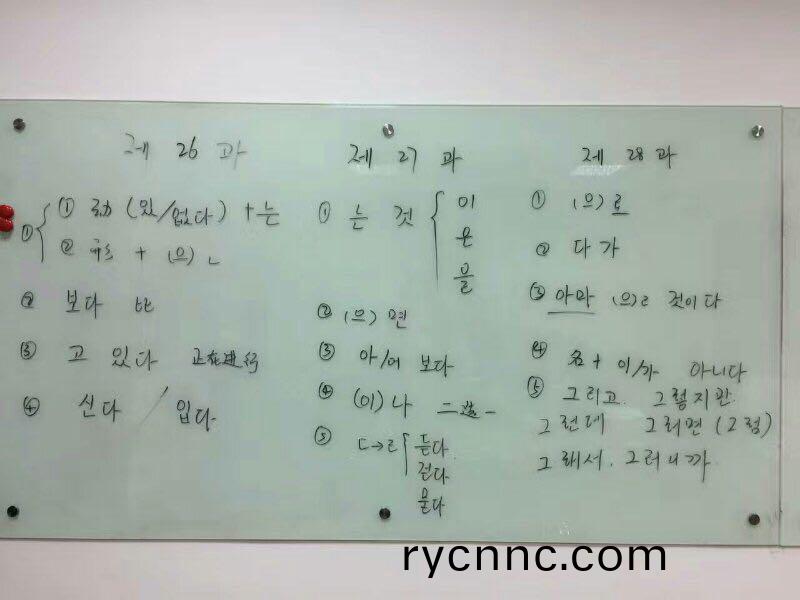 제 26 과
① { ① 动 (있/없다) + 는
② 形 + (으) ㄴ
② 보다 比
③ 고 있다 正在进行
④ 신다 / 입다
제 27 과
① 는 것 { 이
은
을
② (으) 면
③ 아/어 보다
④ (이) 나 二选一
⑤ ㄷ→ㄹ { 듣다
걷다
묻다
제 28 과
① (으) 로
② 다가
③ 아마 (으)ㄹ 것이다
④ 名 + 이/가 아니다
⑤ 그리고. 그렇지만.
그런데 그러면 (그럼)
그래서. 그러니까
rycnnc.com